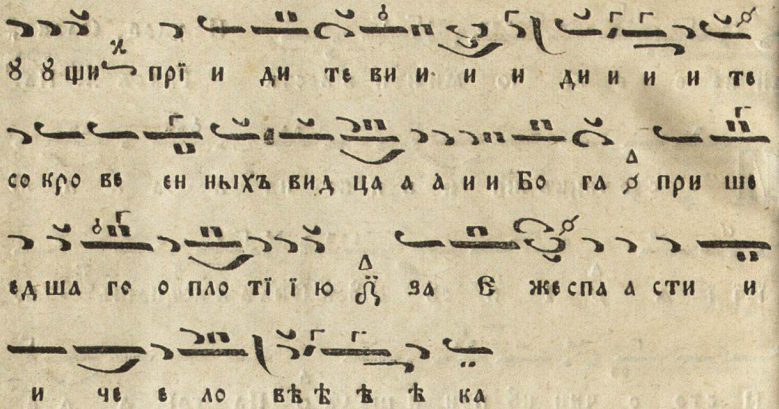 ꙋ ꙋ ши прї и ди те ви и и и и ди и и и те
со кро ве ен ныхъ вид ца а а и и Бо га при ше
ед ша го о пло тї ї ю за Є же спа а сти и
и че е ло вѣ ѣ ѣ ѣ ка